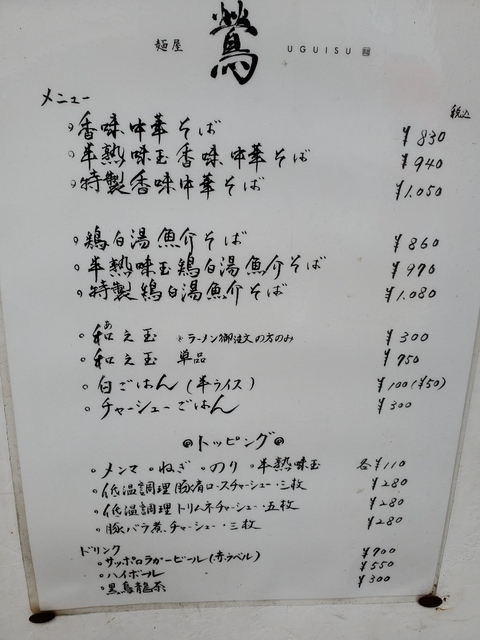 麺屋 鶯 UGUISU
メニュー
税込
。香味中華そば ¥830
。半熟味玉香味中華そば ¥940
。特製香味中華そば ¥1,050
。鶏白湯魚介そば ¥860
。半熟味玉鶏白湯魚介そば ¥970
。特製鶏白湯魚介そば ¥1,080
。和え玉 *ラーメン御注文の方のみ ¥300
。和え玉 単品 ¥750
。白ごはん(半ライス) ¥100(¥50)
。チャーシューごはん ¥300
トッピング
。メンマ 。ねぎ 。のり 。半熟味玉 各¥110
。低温調理 豚肩ロースチャーシュー・三枚 ¥280
。低温調理 トリムネチャーシュー・五枚 ¥280
。豚バラ煮チャーシュー・三枚 ¥280
ドリンク
。サッポロラガービール(赤ラベル) ¥700
。ハイボール ¥550
。黒烏龍茶 ¥300